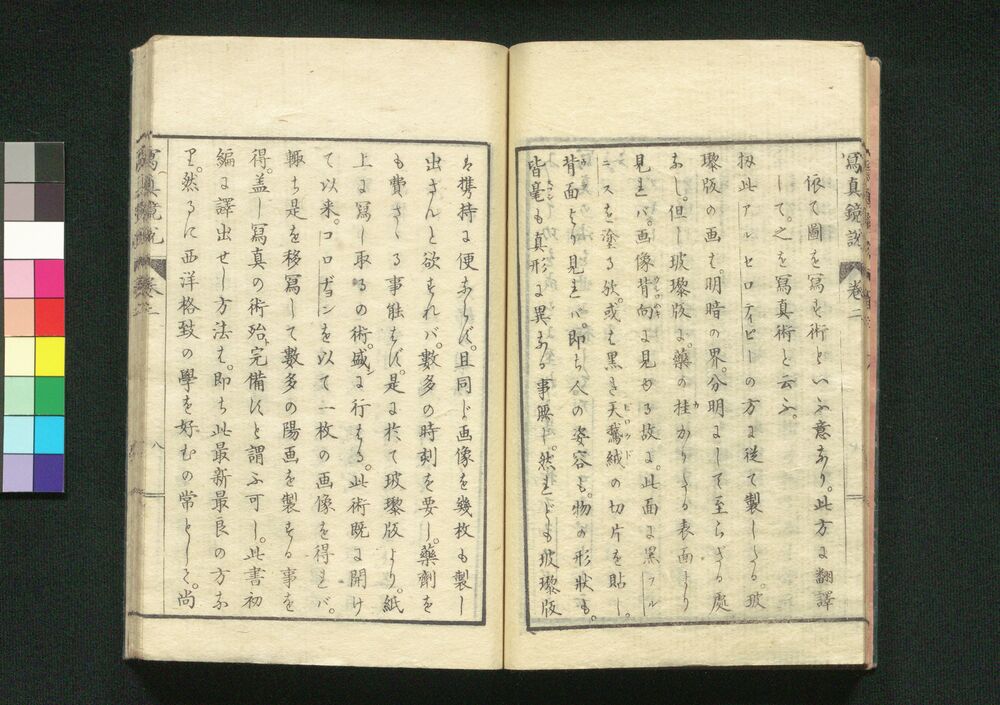 寫真鏡説 巻二
依て圖を寫す術といふ意なり。此方に翻譯
して。之を寫真術と云ふ。
扨此アルセロティピーの方に従て製したる。玻
瓈版の画は。明暗の界。分明にして至らざる處
なし。但し玻瓈版に。藥の挂かりたる表面より
見れバ。画像背向に見ゆる故に。此面に黒フル
ニスを塗る歟。或は黒き天鵞絨の切片を貼し。
背面より見れバ。即ち人の姿容も。物の形状も。
皆毫も真形に異なる事
然れども玻瓈版
は携持に便ならず。且同じ画像を幾枚も製し
出さんと欲すれバ。數多の時刻を要し。藥劑を
も費さゞる事能はず。是に於て玻瓈版より。紙
上に寫し取るの術。盛に行はる。此術既に開け
て以来。コロヂヨンを以て一枚の画像を得れバ。
輙ち是を移寫して數多の陽画を製する事を
得。蓋し寫真の術殆完備すと謂ふ可し。此書初
編に譯出せし方法は。即ち此最新最良の方な
り。然るに西洋格致の學を好むの常として。尚
寫真鏡説
八